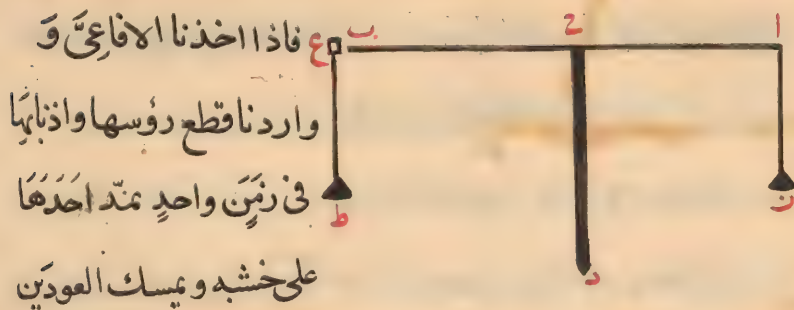 ا ح ب ع
فاذا اخذنا الافاعِىَّ وَ
واردنا قطع رؤسها واذنابها
فى زمَنٍ واحدٍ نمدّ احَدَهَا
ز ط
د
على خشبه ويمسك العودَين